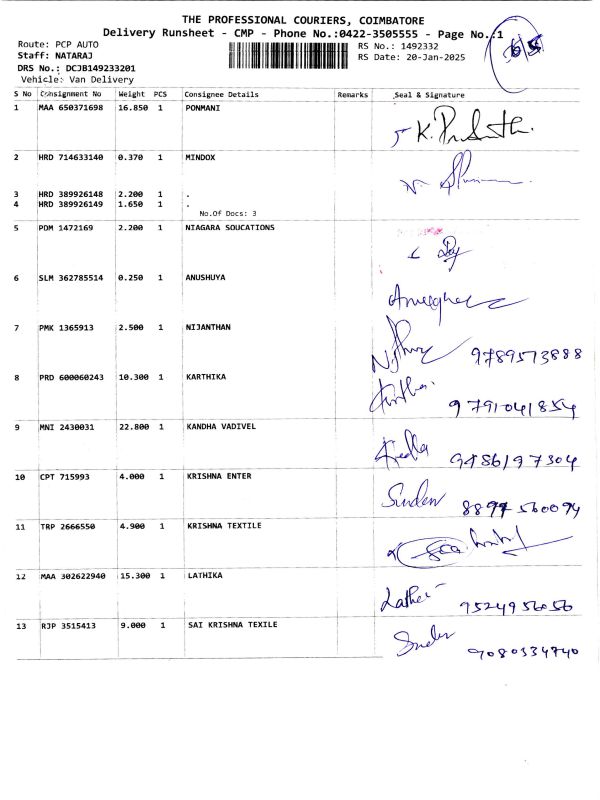 THE PROFESSIONAL COURIERS, COIMBATORE
Delivery Runsheet - CMP - Phone No.:0422-3505555 - Page No.:1
Route: PCP AUTO
RS No.: 1492332
Staff: NATARAJ
RS Date: 20-Jan-2025
DRS No.: DCJB149233201
Vehicle: Van Delivery
S No Consignment No Weight PCS Consignee Details Remarks Seal & Signature
1 MAA 650371698 16.850 1 PONMANI
2 HRD 714633140 0.370 1 MINDOX
3 HRD 389926148 2.200 1 .
4 HRD 389926149 1.650 1 .
No.Of Docs: 3
5 PDM 1472169 2.200 1 NIAGARA SOUCATIONS
6 SLM 362785514 0.250 1 ANUSHUYA
7 PMK 1365913 2.500 1 NIJANTHAN
9789573888
8 PRD 600060243 10.300 1 KARTHIKA
9791041854
9 MNI 2430031 22.800 1 KANDHA VADIVEL
9486197304
10 CPT 715993 4.000 1 KRISHNA ENTER
Sunden
8897560094
11 TRP 2666550 4.900 1 KRISHNA TEXTILE
12 MAA 302622940 15.300 1 LATHIKA
9524956056
13 RJP 3515413 9.000 1 SAI KRISHNA TEXILE
9080334740